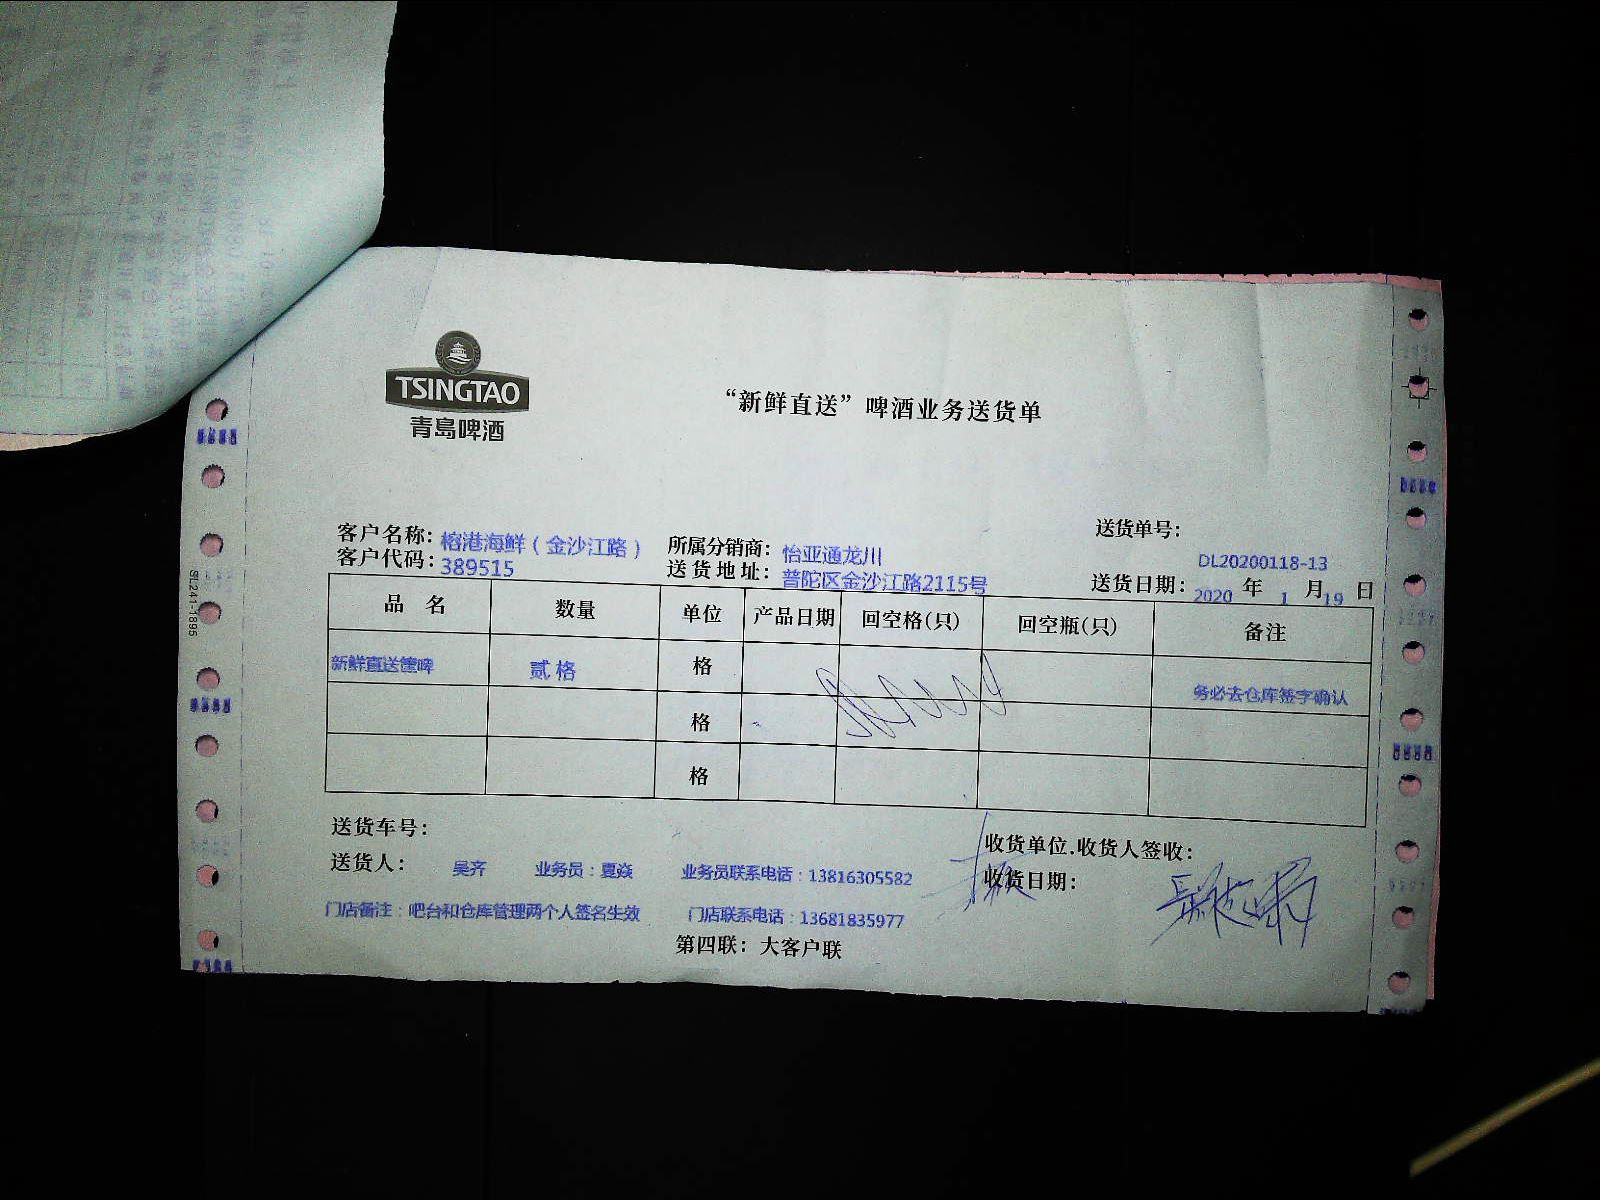 TSINGTAO
青島啤酒
“新鲜直送”啤酒业务送货单
送货单号：
DL20200118-13
客户名称：榕港海鲜（金沙江路） 所属分销商：怡亚通龙川
客户代码：389515 送货地址：普陀区金沙江路2115号 送货日期：2020 年 1 月19 日
品 名 数量 单位 产品日期 回空格(只) 回空瓶(只) 备注
新鲜直送 贰格 格 务必去仓库签字确认
格
格
送货车号：
收货单位.收货人签收：
送货人： 吴齐 业务员：夏焱 业务员联系电话：13816305582 收货日期：
门店备注：吧台和仓库管理两个人签名生效 门店联系电话：13681835977
第四联：大客户联
SL241-1895